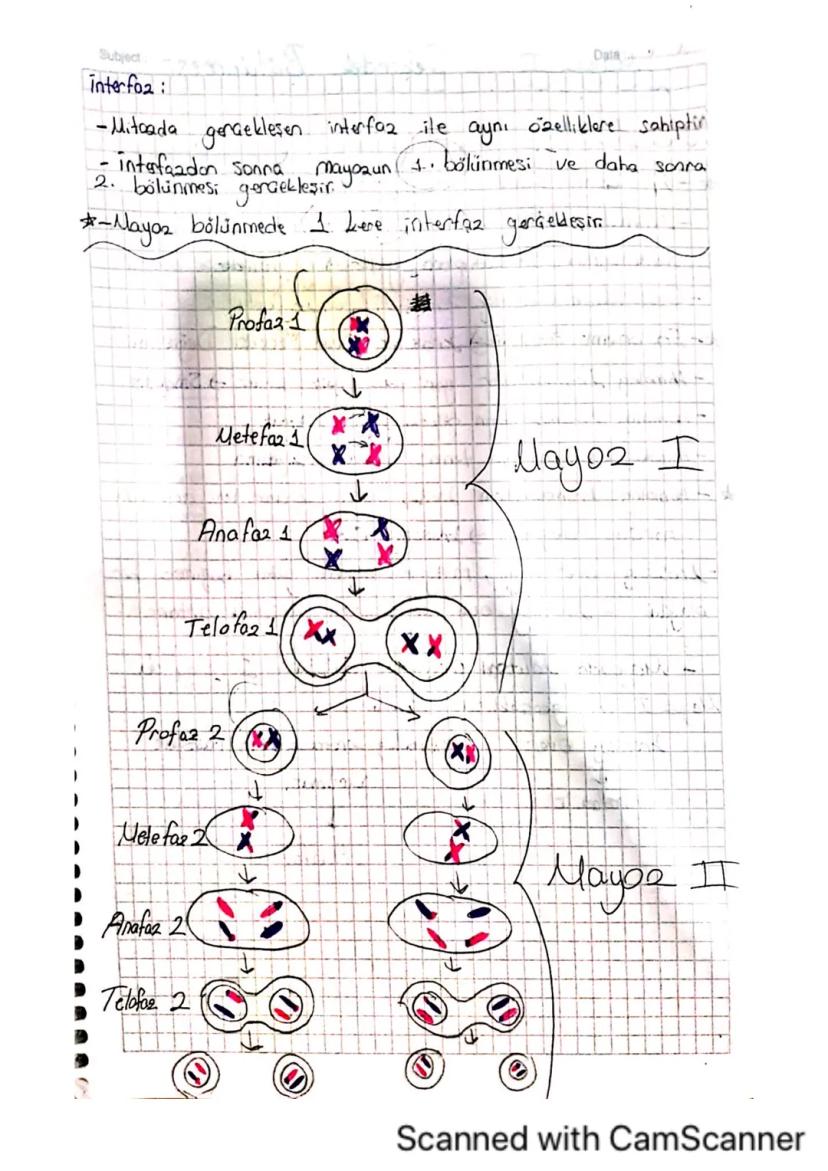 Subject
Data
interfaz :
- Mitozda gerçekleşen interfaz ile aynı özelliklere sahiptir
- interfazdan sonra mayozun 1. bölünmesi ve daha sonra
2. bölünmesi gerçekleşir.
*- Mayoz bölünmede 1 kere interfaz gerçekleşir.
Profaz 1
Metefaz 1
Mayoz I
Anafaz 1
Telofaz 1
Profaz 2
Metefaz 2
Mayoz II
Anafaz 2
Telofaz 2
Scanned with CamScanner